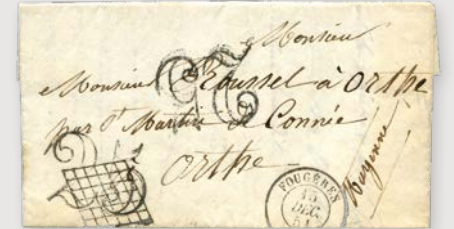 Monsieur
Monsieur Roussel à Orthe
par St Martin de Connée
Orthe
Mayenne
25
25
FOUGÈRES
15
DEC.
51